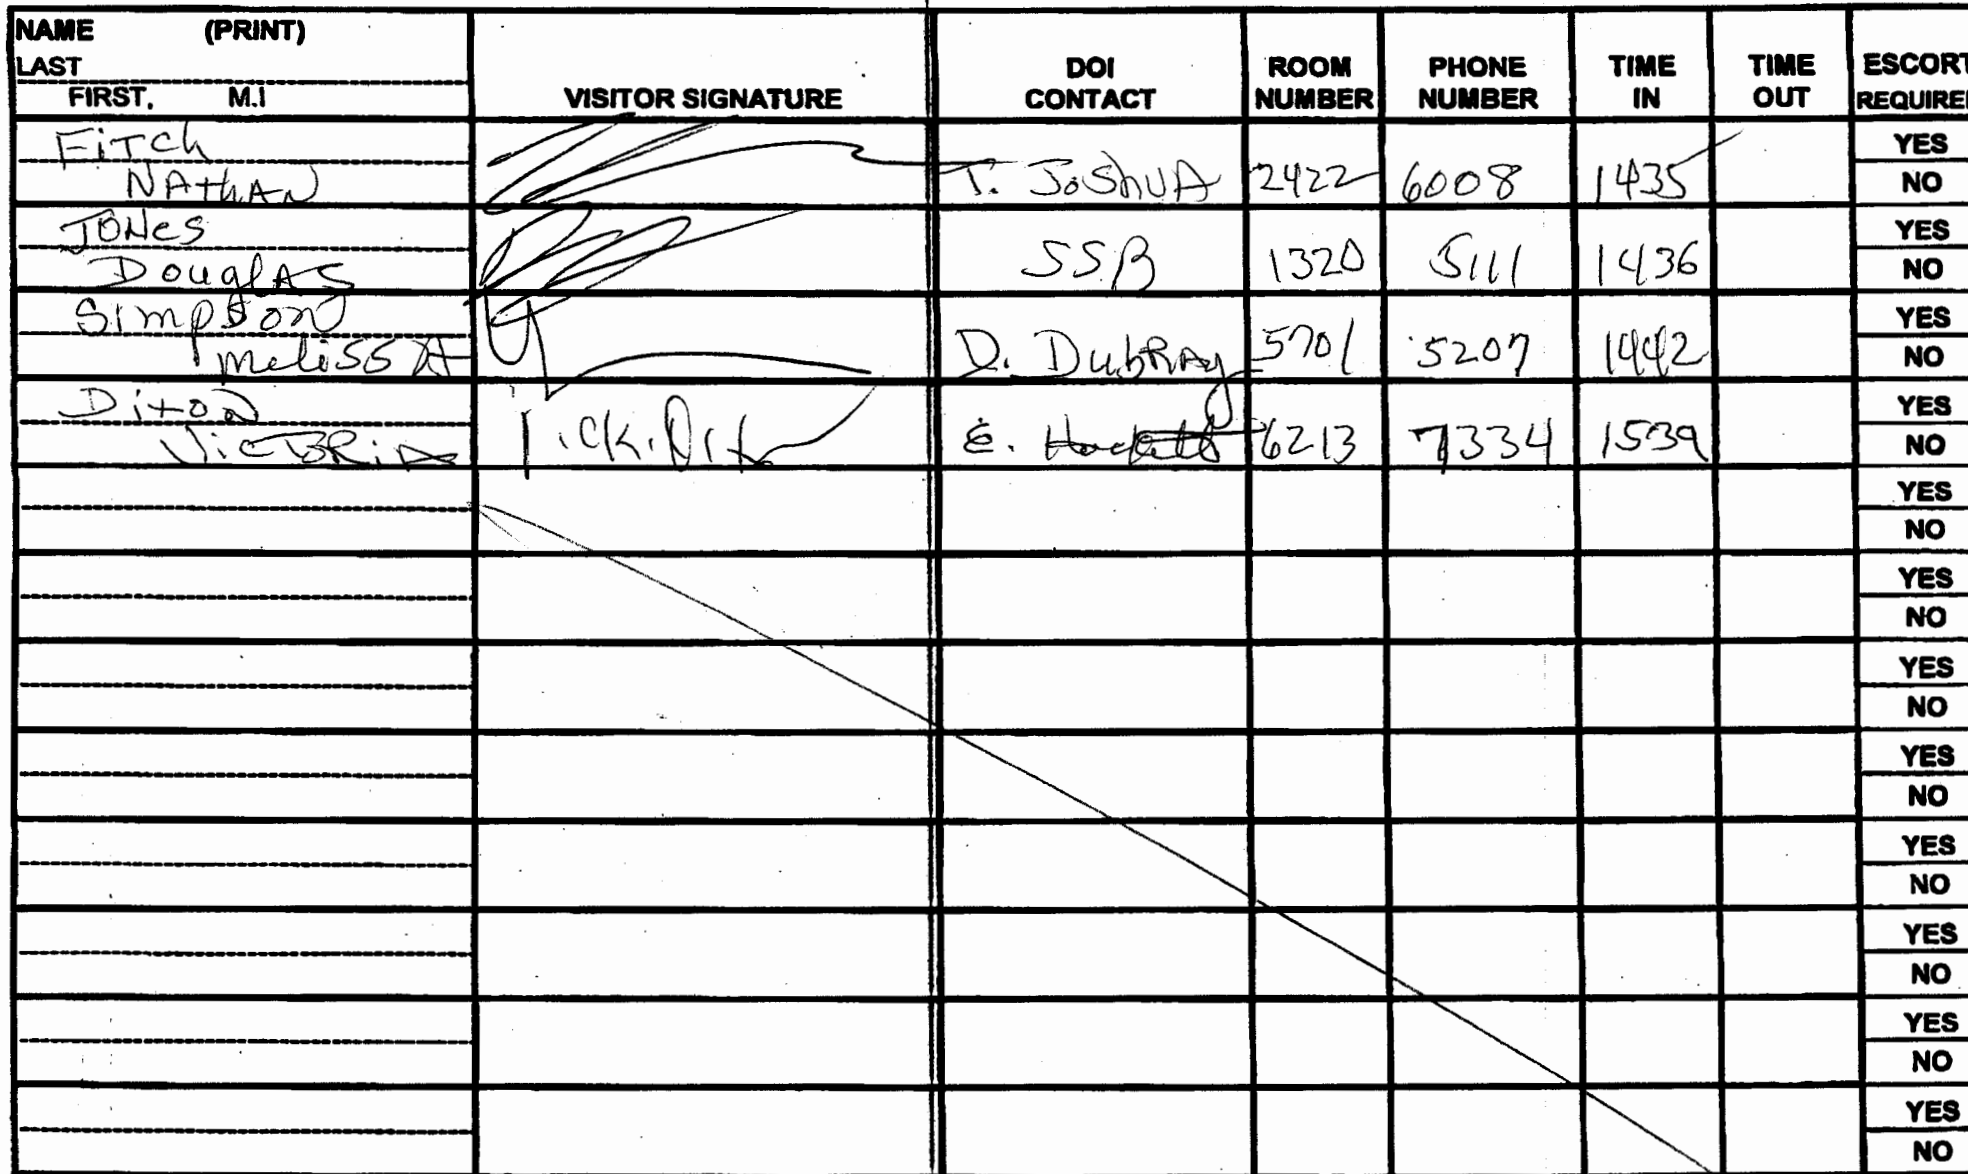 NAME (PRINT)
LAST
FIRST, M.I
VISITOR SIGNATURE
DOI CONTACT
ROOM NUMBER
PHONE NUMBER
TIME IN
TIME OUT
ESCORT
REQUIRED
Fitch
NAthAN
T. JoShUA 2422 6008 1435
YES
NO
JONes
DouglAS
SSB 1320 5111 1436
YES
NO
Simpson
MelissA
D. DubRAy 5701 5207 1442
YES
NO
Diton
VicTORiA
Vicki Dit
E. 6213 7334 1539
YES
NO
YES
NO
YES
NO
YES
NO
YES
NO
YES
NO
YES
NO
YES
NO
YES
NO